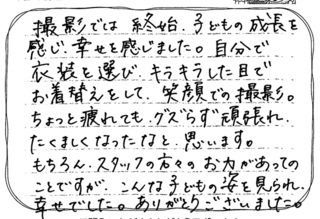 撮影では終始、子どもの成長を
感じ、幸せを感じました。自分で
衣装を選び、キラキラした目で
お着替えをして、笑顔での撮影。
ちょっと疲れても、グズらず頑張れ、
たくましくなったなと、思います。
もちろん、スタッフの方々のお力があっての
ことですが、こんな子どもの姿を見られ、
幸せでした。ありがとうございました。